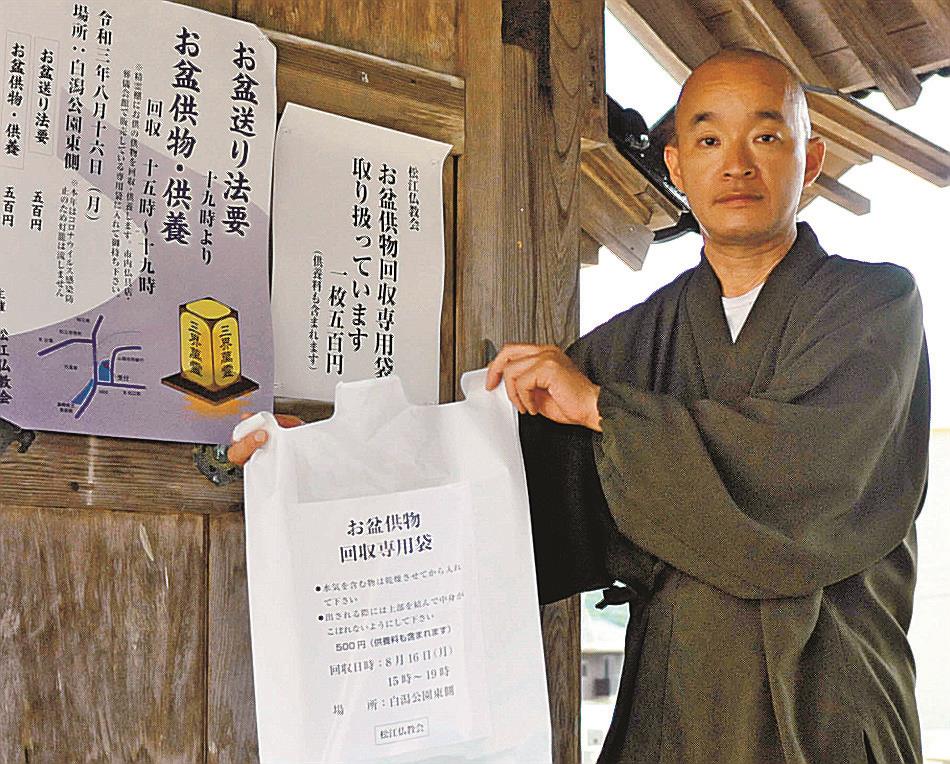 お盆送り法要
十九時より
お盆供物・供養
回収 十五時~十九時
※精霊棚にお供の供物を回収・供養します。市内仏具店・
葬儀会館で販売している専用袋に入れて御持ち下さい。
令和三年八月十六日(月)
場所:白潟公園東側
※本年はコロナウイルス感染防
止のため灯籠は流しません
お盆送り法要 五百円
お盆供物・供養 五百円
松江仏教会
三界萬霊
三界萬霊
松江仏教会
お盆供物回収専用袋
取り扱っています
一枚五百円
(供養料も含まれます)
お盆供物
回収専用袋
●水気を含む物は乾燥させてから入れ
て下さい
●出される際には上部を結んで中身が
こぼれないようにして下さい
500円(供養料も含まれます)
回収日時:8月16日(月)
15時~19時
場 所:白潟公園東側
松江仏教会